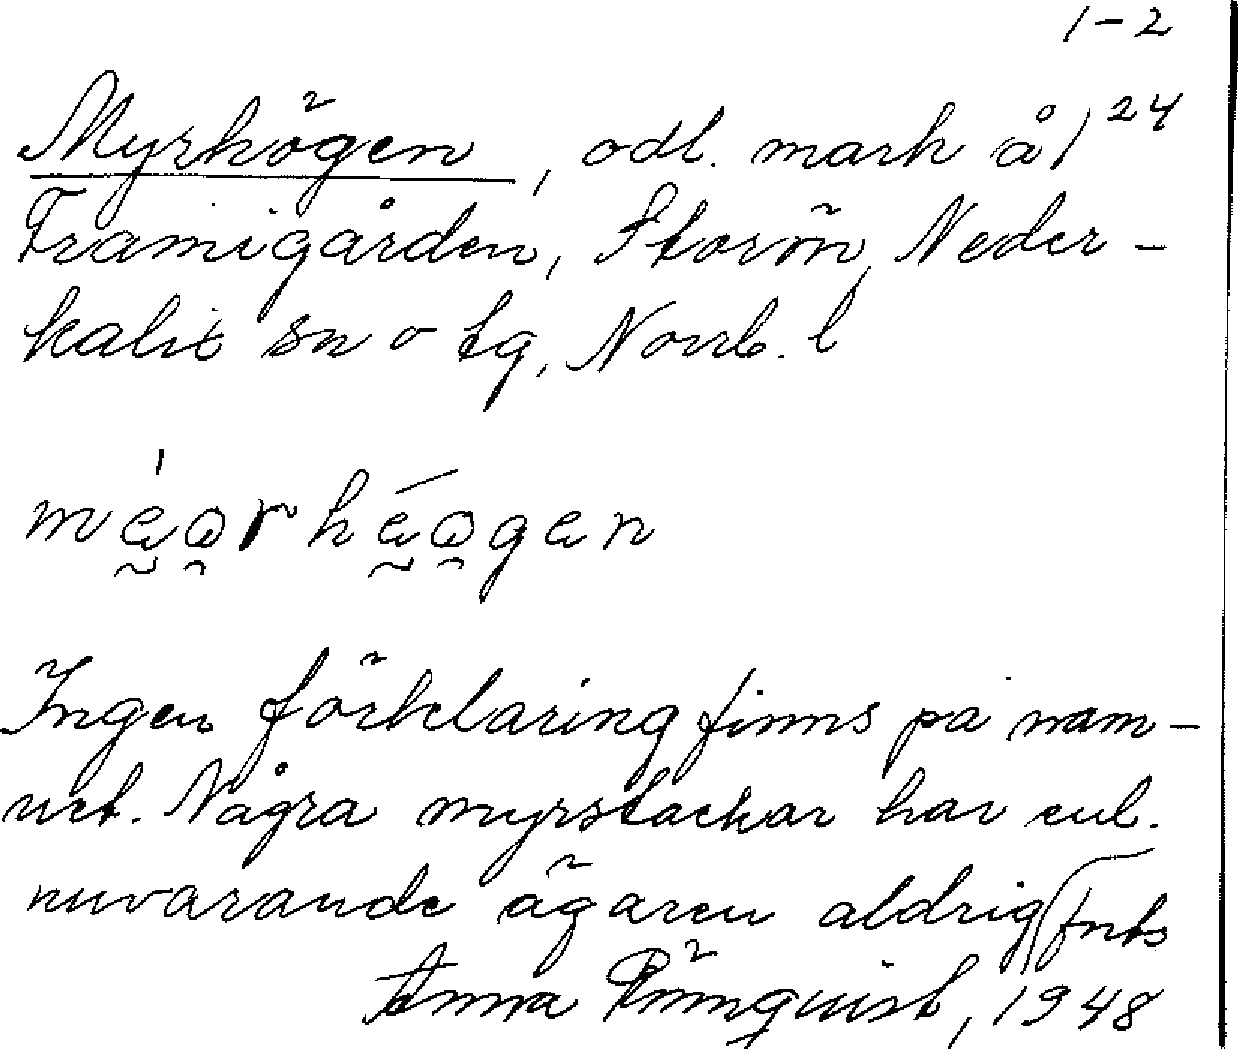 1-2
Myrhögen, odl. mark å 1²⁴
Framigården, Storön, Neder-
kalix sn o tg, Norrb. l
Ingen förklaring finns på nam-
net. Några myrstackar har enl.
nuvarande ägaren aldrig fnts
Anna Rönnquist, 1948